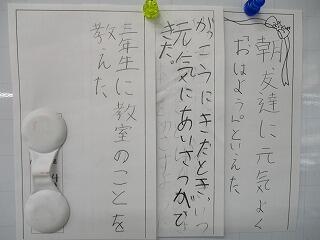 朝友達に元気よく
「おはよう。」といえた。
がっこうにきたときいつ
元気にあいさつがで
きた。
三年生に教室のことを
教えた